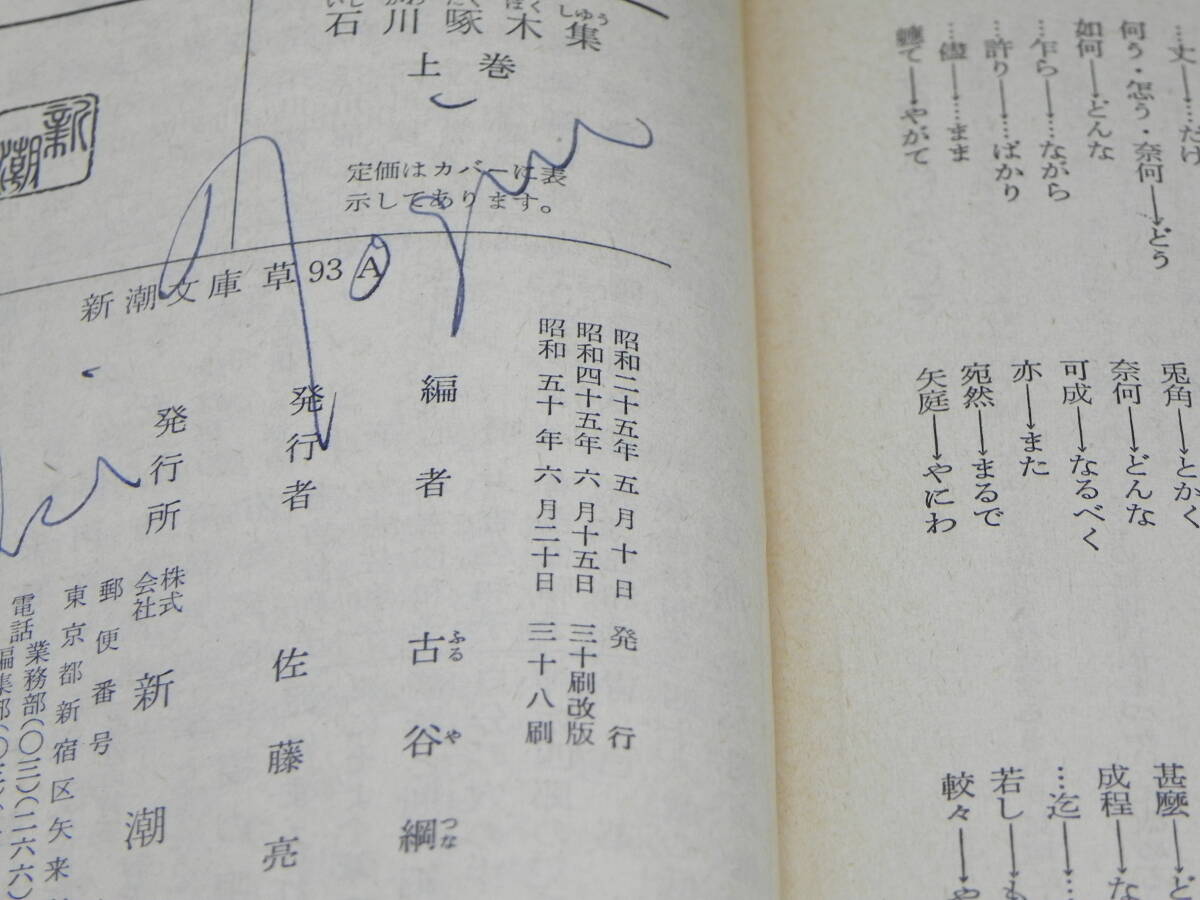 …丈──→…だけ
何う・怎う・奈何─→どう
如何─→どんな
…乍ら──→…ながら
…許り──→…ばかり
…儘──→…まま
軈て──→やがて
兎角─→とかく
奈何─→どんな
可成─→なるべく
亦──→また
宛然─→まるで
矢庭─→やにわ
甚麼─→ど
成程─→な
…迄─→…
若し─→も
較々─→や
いし かわ たく ぼく しゅう
石川啄木集
上巻
定価はカバーに表
示してあります。
新潮
新潮文庫 草93 A
昭和二十五年五月十日発行
昭和四十五年六月十五日三十刷改版
昭和五十年六月二十日三十八刷
編者 古谷綱
ふる や つな
発行者 佐藤亮
発行所 株式会社 新潮
郵便番号
東京都新宿区矢来
電話 業務部(〇三)(二六六)
編集部(〇三)